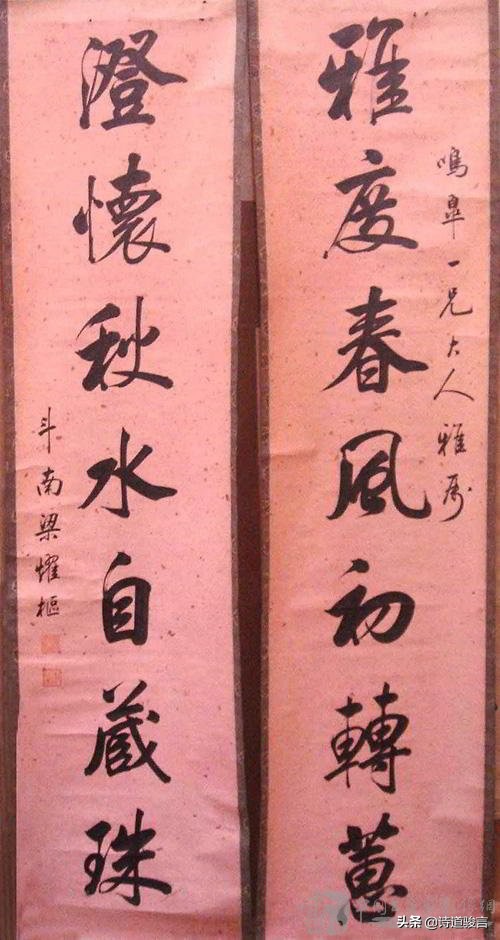 鳴皋一兄大人雅属
雅度春風初轉蕙
澄懷秋水自蔵珠
斗南梁燿樞
头条@诗道骏言